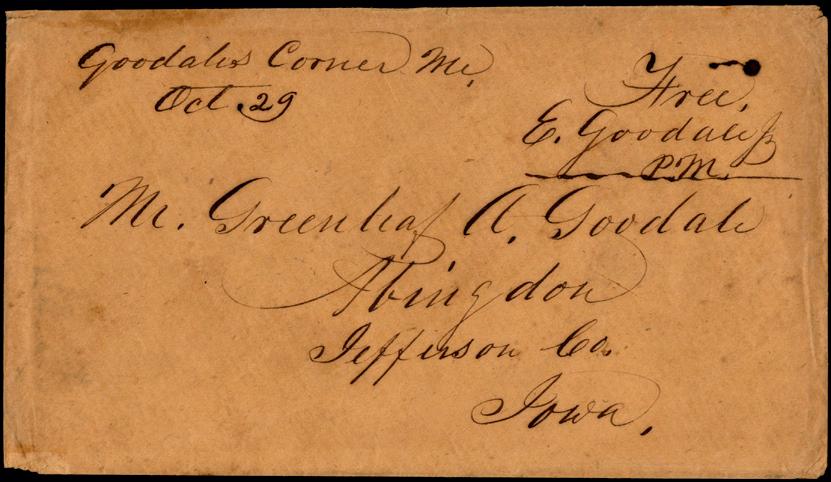 Goodales Corner Me,
Oct. 29
Free,
E. Goodale
P.M.
Mr. Greenleaf A. Goodale
Abingdon
Jefferson Co.
Iowa,